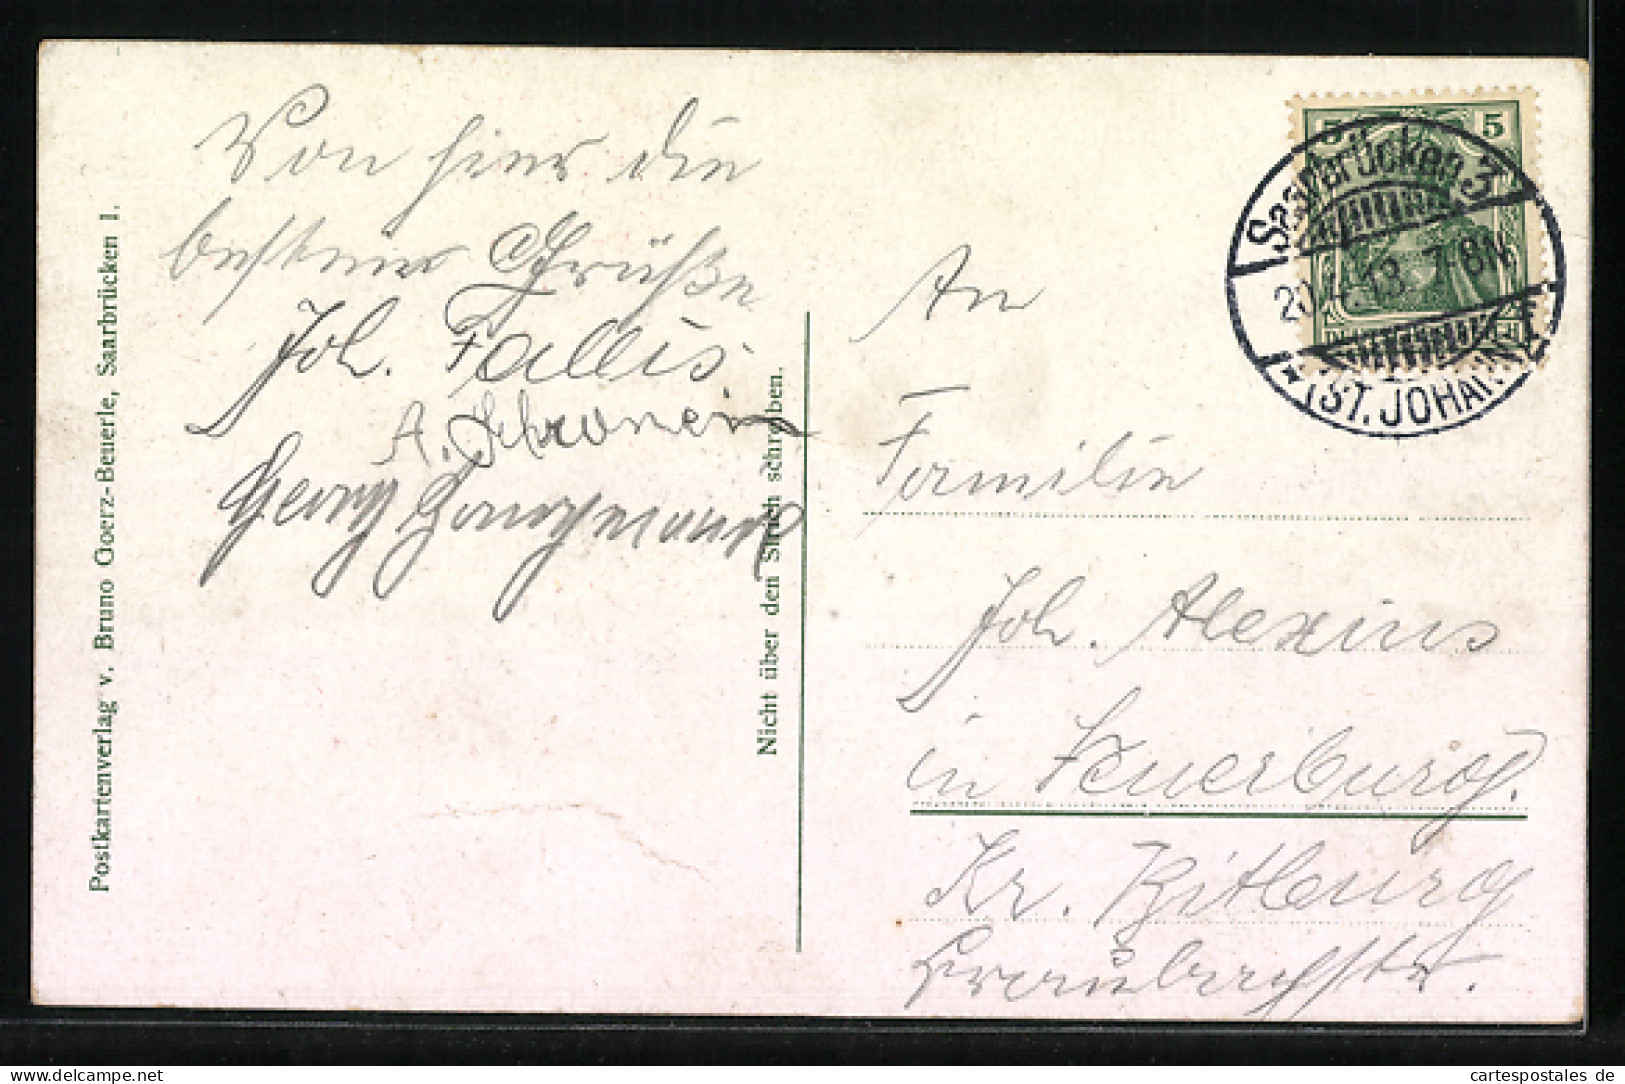 Von hier die
besten Grüße
Joh. Fallis.
A.
Georg
Postkartenverlag v. Bruno Goerz-Beuerle, Saarbrücken 1.
Nicht über den Strich schreiben.
5 5
Saarbrücken 3
20.4.13. 7-8N
* (ST. JOHANN)
An
Familie
Joh. Alexius
in Neuerburg.
Kr. Bitburg
cartespostales de